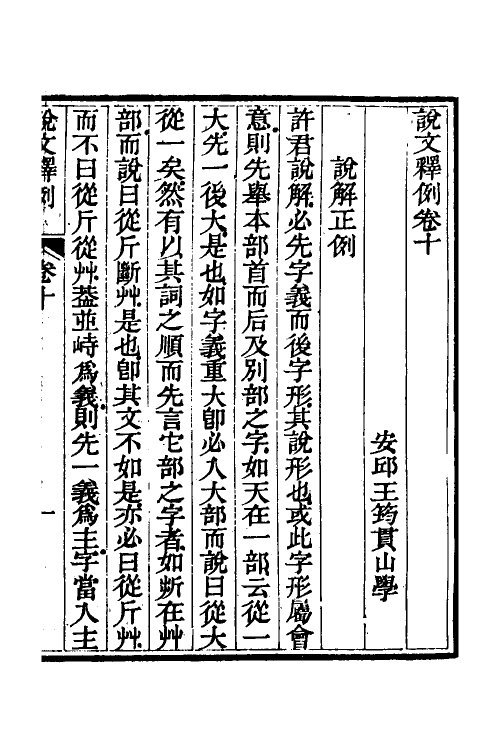 說文釋例卷十
安邱王筠貫山學
說解正例
許君說解必先字義而後字形其說形也或此字形屬會
意則先舉本部首而后及別部之字如天在一部云從一
大先一後大是也如字義重大卽必入大部而說曰從大
從一矣然有以其詞之順而先言它部之字者如斯在艸
部而說曰從斤斷艸是也卽其文不如是亦必曰從斤艸
而不曰從斤從艸蓋並峙爲義則先一義爲主字當入主
說文釋例
卷十
一